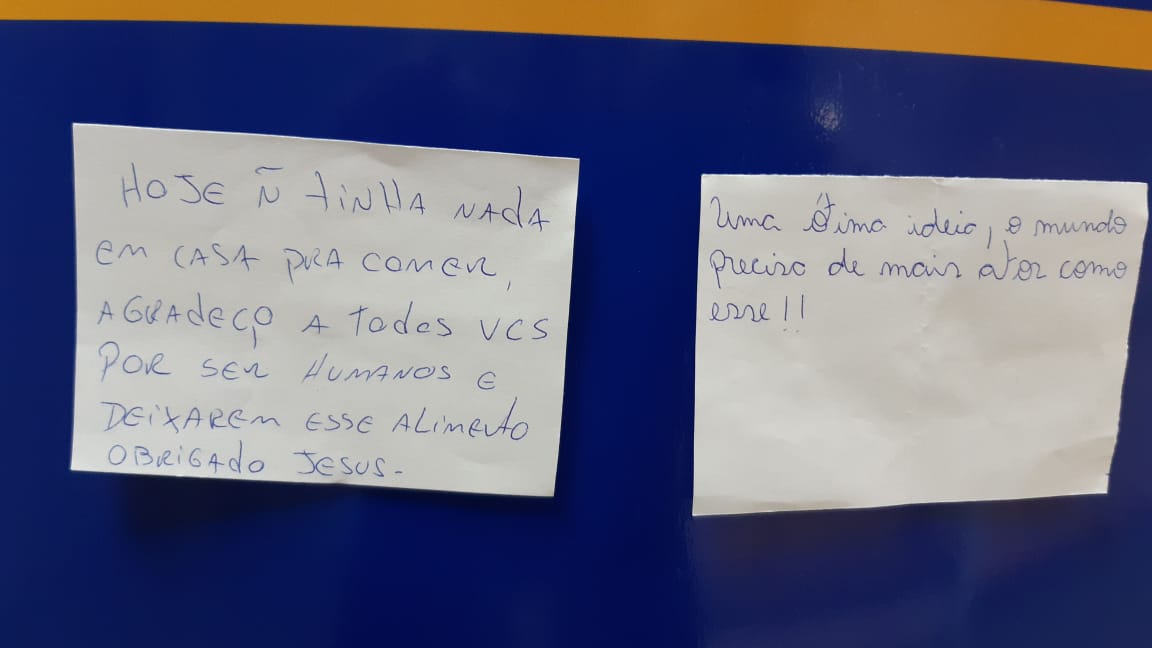 HOJE Ñ TINHA NADA
EM CASA PRA COMER,
AGRADEÇO A TODOS VCS
POR SER HUMANOS E
DEIXAREM ESSE ALIMENTO
OBRIGADO JESUS-
Uma ótima ideia, o mundo
precisa de mais ator como
esse!!